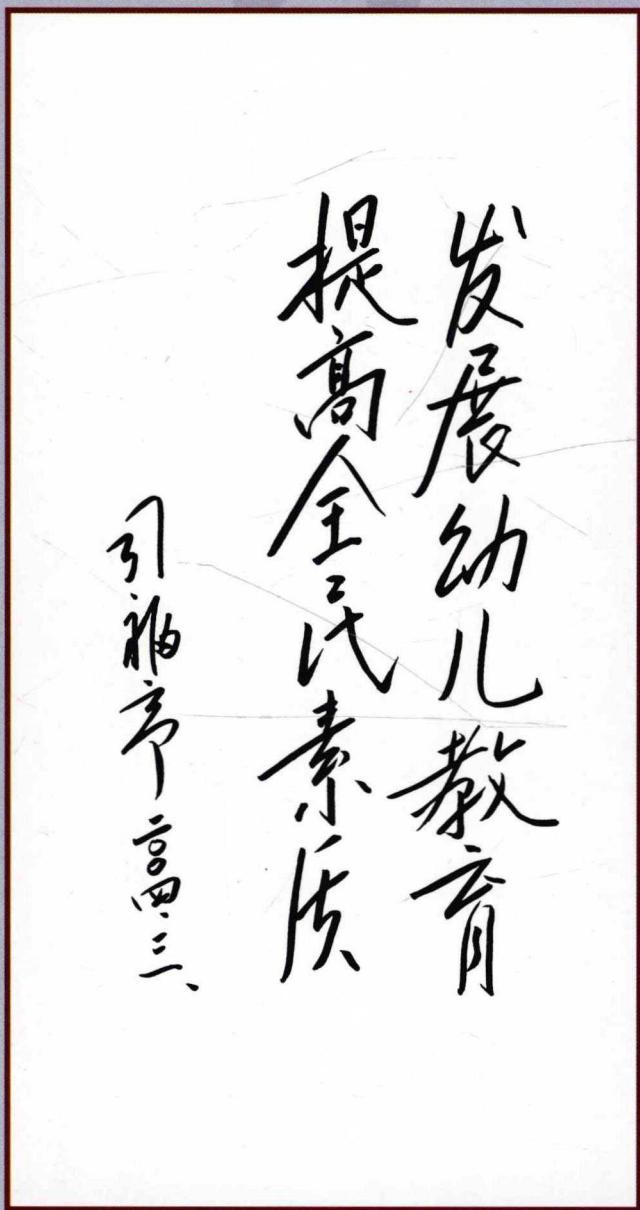 发展幼儿教育
提高全民素质
二〇〇四.三、